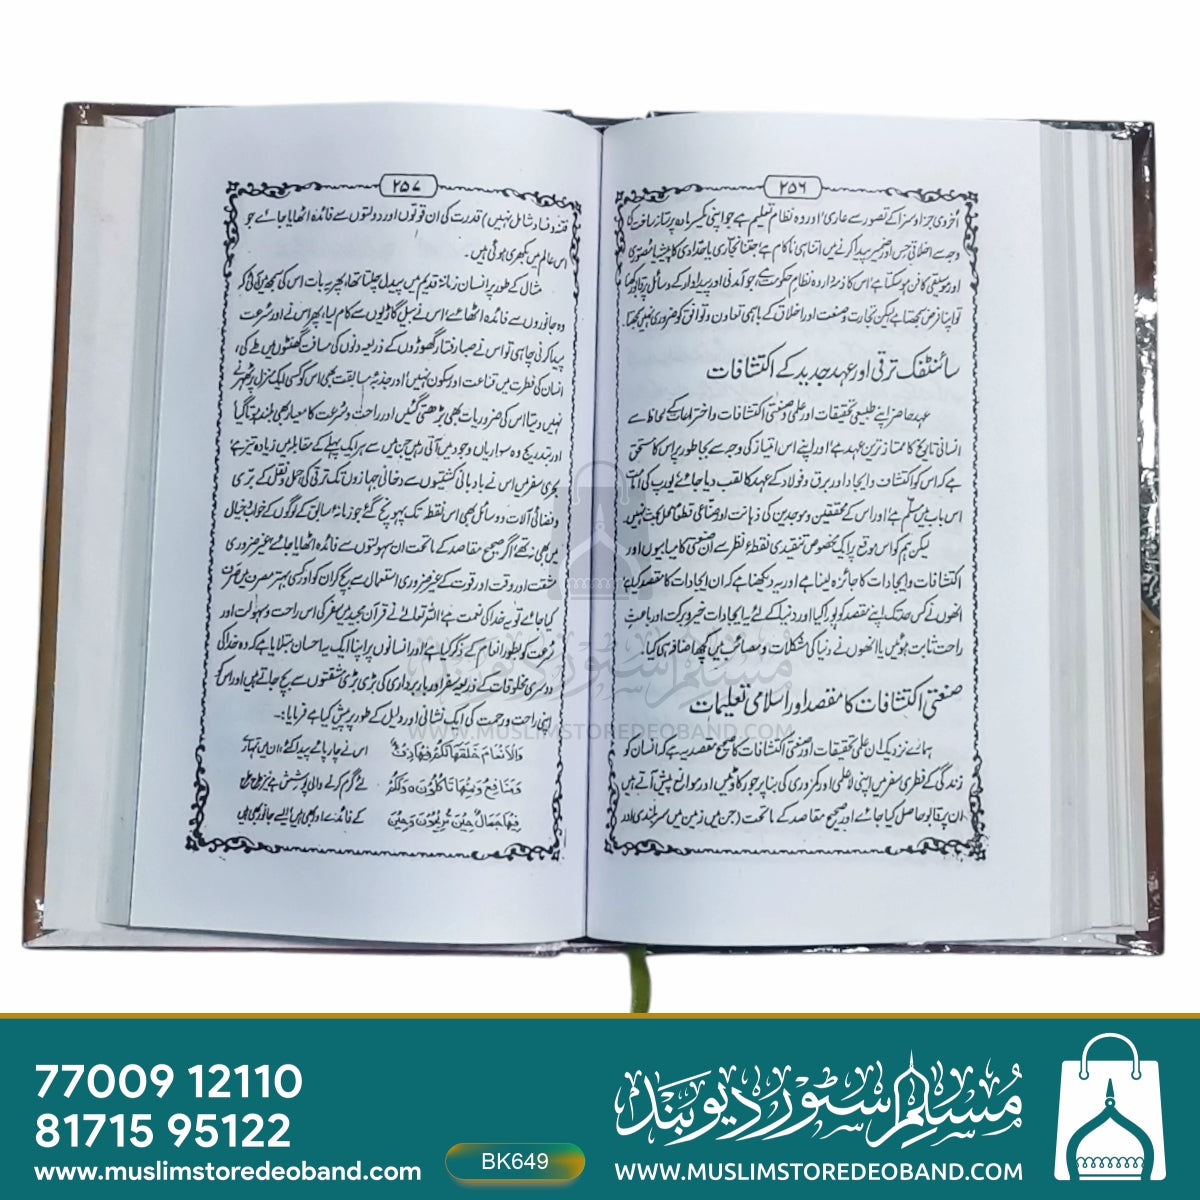 ۲۵۶
اُخروی جزا و سزا کے تصور سے عاری' اور وہ نظام تعلیم ہے جو اپنی
وجہ سے اخلاقی حِس اور ضمیر پیدا کرنے میں اتنا ہی ناکام ہے جتنا نجاری یا حدادی کا پیشہ یا مصوری
اور موسیقی کا فن ہو سکتا ہے' اس کا ذمہ دار وہ نظام حکومت ہے جو آمدنی اور پیداوار کے وسائل پر قابو رکھنا
تو اپنا فرض سمجھتا ہے لیکن تجارت و صنعت اور اخلاق کے باہمی تعاون و توافق کو ضروری نہیں سمجھتا
سائنٹفک ترقی اور عہد جدید کے اکتشافات
عہد حاضر اپنے طبیعی تحقیقات اور علمی و صنعتی اکتشافات و اختراعات کے لحاظ سے
انسانی تاریخ کا ممتاز ترین عہد ہے' اور اپنے اس امتیاز کی وجہ سے بجا طور پر اس کا مستحق
ہے کہ اس کو اکتشافات و ایجاد اور برق و فولاد کے عہد کا لقب دیا جائے یورپ کی امامت
اس باب میں مسلّم ہے' اور اس کے محققین و موجدین کی ذہانت اور صناعی قطعاً محل بحث نہیں
لیکن ہم کو اس موقع پر ایک مخصوص تنقیدی نقطۂ نظر سے ان صنعتی کامیابیوں اور
اکتشافات و ایجادات کا جائزہ لینا ہے اور یہ دیکھنا ہے کہ ان ایجادات کا مقصد کیا ہے
انھوں نے کس حد تک اپنے مقصد کو پورا کیا اور دنیا کے لئے یہ ایجادات خیر و برکت اور باعثِ
راحت ثابت ہوئیں یا انھوں نے دنیا کی مشکلات و مصائب میں کچھ اضافہ ہی کیا۔
صنعتی اکتشافات کا مقصد اور اسلامی تعلیمات
ہمارے نزدیک ان علمی تحقیقات اور صنعتی اکتشافات کا صحیح مقصد یہ ہے کہ انسان کو
زندگی کے فطری سفر میں اپنی لا علمی اور کمزوری کی بنا پر جو رکاوٹیں اور موانع پیش آتے ہیں
ان پر قابو حاصل کیا جائے اور صحیح مقاصد کے ماتحت (جن میں زمین میں سر بلندی اور
۲۵۷
فتنہ و فساد شامل نہیں) قدرت کی ان قوتوں اور دولتوں سے فائدہ اٹھایا جائے جو
اس عالم میں بکھری ہوئی ہیں۔
مثال کے طور پر انسان زمانۂ قدیم میں پیدل چلتا تھا، پھر یہ بات اس کی سمجھ میں آئی کہ
وہ جانوروں سے فائدہ اٹھائے' اس نے بیل گاڑیوں سے کام لیا، پھر اس نے اور سُرعت
پیدا کرنی چاہی تو اس نے صبا رفتار گھوڑوں کے ذریعہ دنوں کی مسافت گھنٹوں میں طے کی،
انسان کی فطرت میں قناعت اور سکون نہیں' اور جذبۂ مسابقت بھی اس کو کسی ایک منزل پر ٹھہرنے
نہیں دیتا' اس کی ضروریات بھی بڑھتی گئیں اور راحت و سُرعت کا معیار بھی بلند ہوتا گیا
اور بتدریج وہ سواریاں وجود میں آتی رہیں جن میں سے ہر ایک پہلے کے مقابلہ میں زیادہ تیز ہے'
بحری سفر میں اس نے بادبانی کشتیوں سے دخانی جہازوں تک ترقی کی' حمل و نقل کے برّی
و فضائی آلات و وسائل بھی اس نقطہ تک پہونچ گئے جو زمانۂ سابق کے لوگوں کے خواب و خیال
میں بھی نہ تھے' اگر صحیح مقاصد کے ماتحت ان سہولتوں سے فائدہ اٹھایا جائے غیر ضروری
مشقت اور وقت اور قوت کے غیر ضروری استعمال سے بچ کر ان کو اور کسی بہتر مصرف میں صرف
کیا جائے تو یہ خدا کی نعمت ہے' اللہ تعالےٰ نے قرآن مجید میں سفر کی اس راحت و سہولت اور
سُرعت کو بطور انعام کے ذکر کیا ہے' اور انسانوں پر اپنا ایک یہ احسان بتلایا ہے کہ وہ خدا کی
دوسری مخلوقات کے ذریعہ سفر اور بار برداری کی بڑی بڑی مشقتوں سے بچ جاتے ہیں اور اس کو
اپنی راحت و رحمت کی ایک نشانی اور دلیل کے طور پر پیش کیا ہے فرمایا:۔
وَالْاَنْعَامَ خَلَقَهَا لَكُمْ فِيْهَا دِفْءٌ اس نے چارپائے پیدا کئے' ان میں تمہارے
وَّمَنَافِعُ وَمِنْهَا تَاْكُلُوْنَ ۝ وَلَكُمْ لئے گرم کرنے والی پوشش ہے نیز طرح طرح
فِيْهَا جَمَالٌ حِيْنَ تُرِيْحُوْنَ وَحِيْنَ کے فائدے اور بھی ہیں ایسے جانور بھی ہیں
مسلم سٹور دیوبند
WWW.MUSLIMSTOREDEOBAND.COM
77009 12110
81715 95122
www.muslimstoredeoband.com
BK649
مسلم سٹور دیوبند
WWW.MUSLIMSTOREDEOBAND.COM